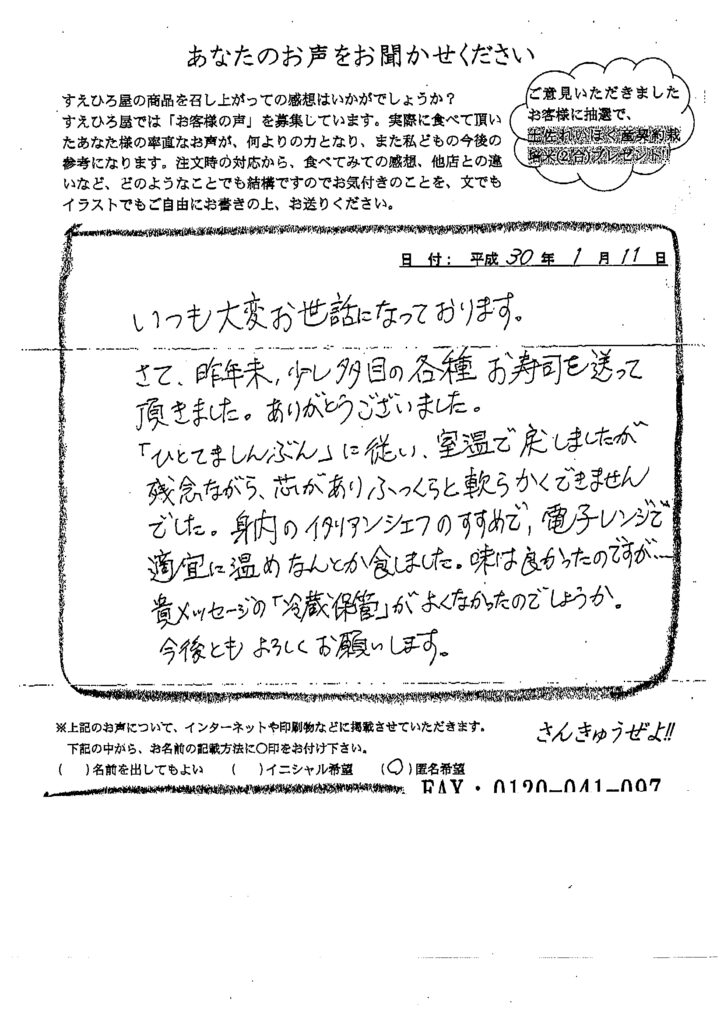 あなたのお声をお聞かせください
すえひろ屋の商品を召し上がっての感想はいかがでしょうか？
すえひろ屋では「お客様の声」を募集しています。実際に食べて頂い
たあなた様の率直なお声が、何よりの力となり、また私どもの今後の
参考になります。注文時の対応から、食べてみての感想、他店との違
いなど、どのようなことでも結構ですのでお気付きのことを、文でも
イラストでもご自由にお書きの上、お送りください。
ご意見いただきました
お客様に抽選で、
土佐れいほく産契約栽
培米(2合)プレゼント!
日付：平成 30 年 1 月 11 日
いつも大変お世話になっております。
さて、昨年来、少し多目の各種お寿司を送って
頂きました。ありがとうございました。
「ひとてましんぶん」に従い、室温で戻しましたが
残念ながら、芯がありふっくらと軟らかくできません
でした。身内のイタリアンシェフのすすめで、電子レンジで
適宜に温めなんとか食しました。味は良かったのですが…
貴メッセージの「冷蔵保管」がよくなかったのでしょうか。
今後ともよろしくお願いします。
※上記のお声について、インターネットや印刷物などに掲載させていただきます。
下記の中から、お名前の記載方法に○印をお付け下さい。
( )名前を出してもよい ( )イニシャル希望 (○)匿名希望
さんきゅうぜよ!!
FAX・0120-041-097